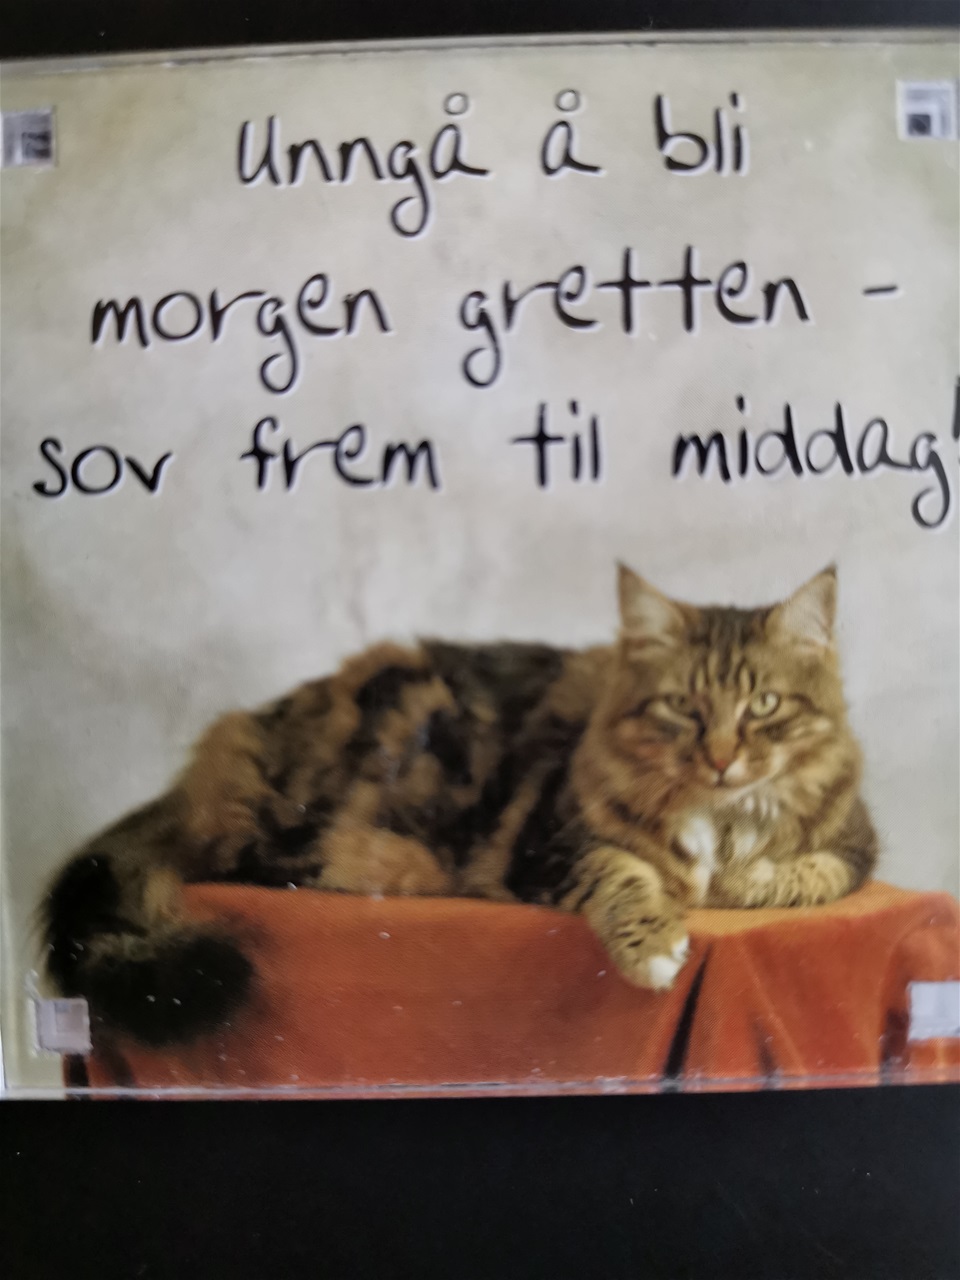 Unngå å bli
morgen gretten -
sov frem til middag!